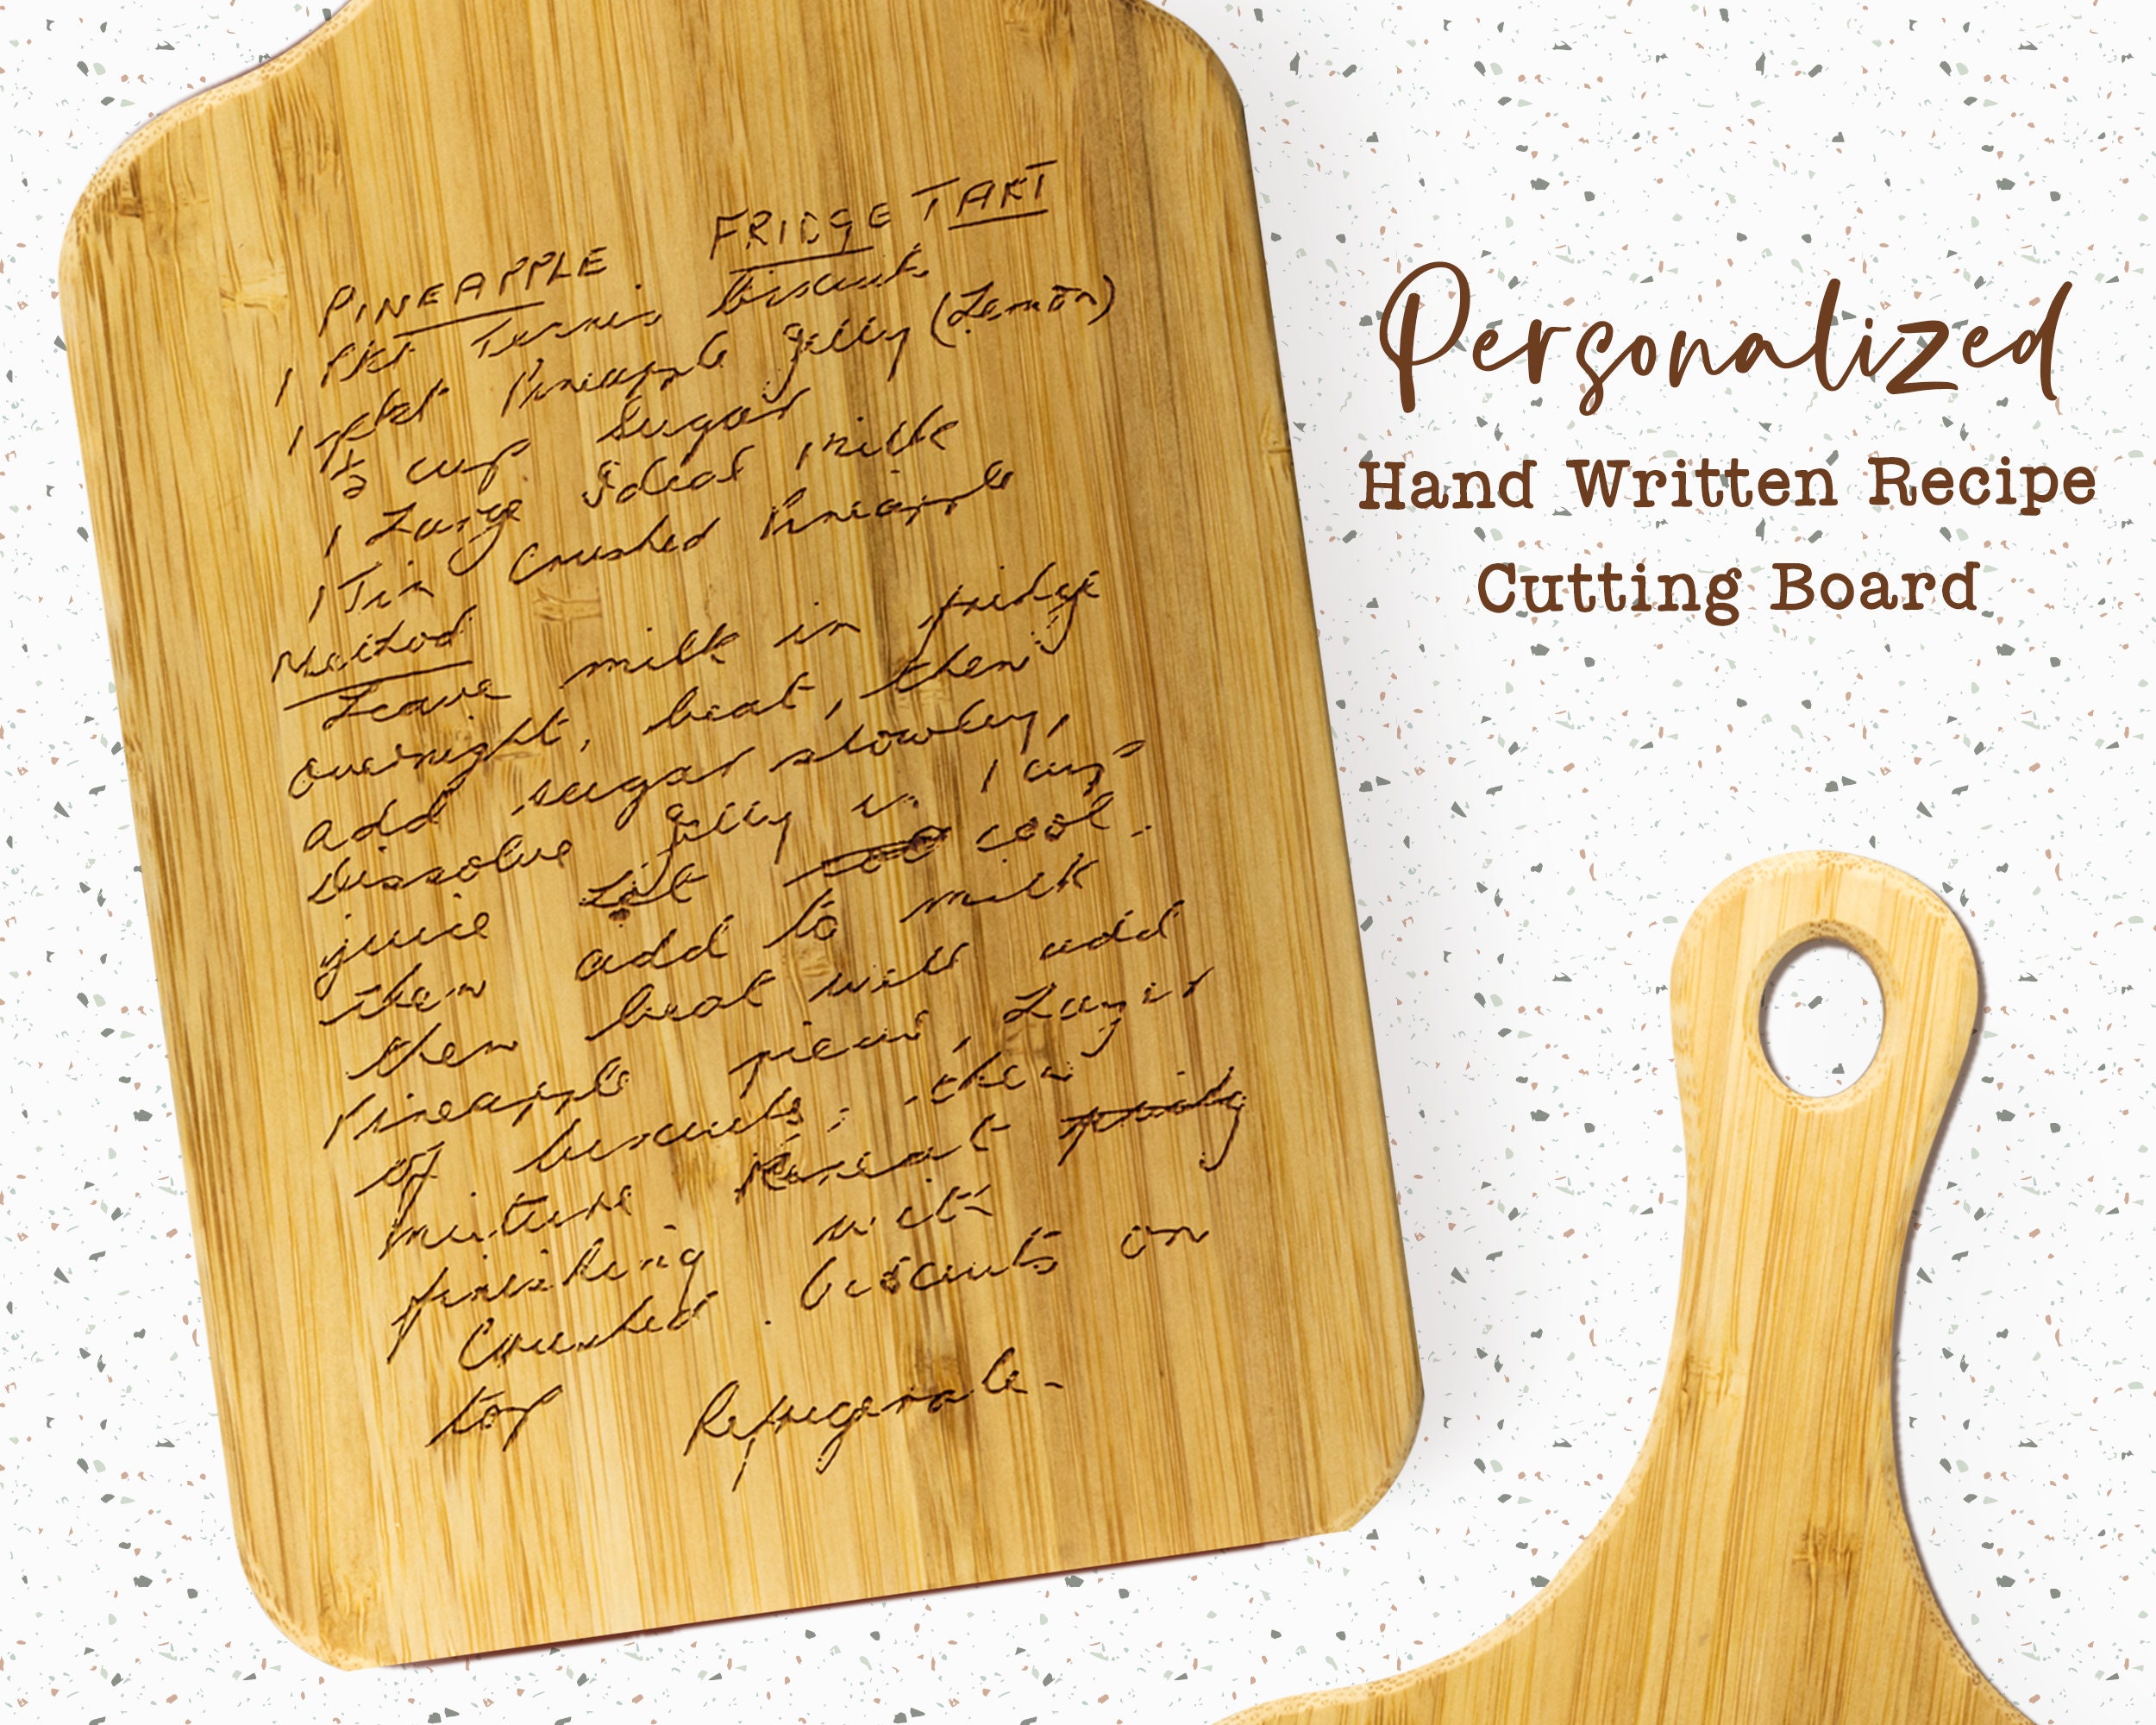 PINEAPPLE FRIDGE TART
1 Pkt Tennis biscuits
1 pkt Pineapple jelly (Lemon)
½ cup Sugar
1 Large Ideal milk
1 Tin Crushed Pineapple
Method
Leave milk in fridge
overnight, beat, then
add sugar slowley,
dissolve jelly in 1 cup
juice Let cool.
then add to milk
then beat well add
Pineapple pieces, Layer
of biscuits, then
mixture Repeat
finishing with
Crushed biscuits on
top Refrigerate.
Personalized
Hand Written Recipe
Cutting Board